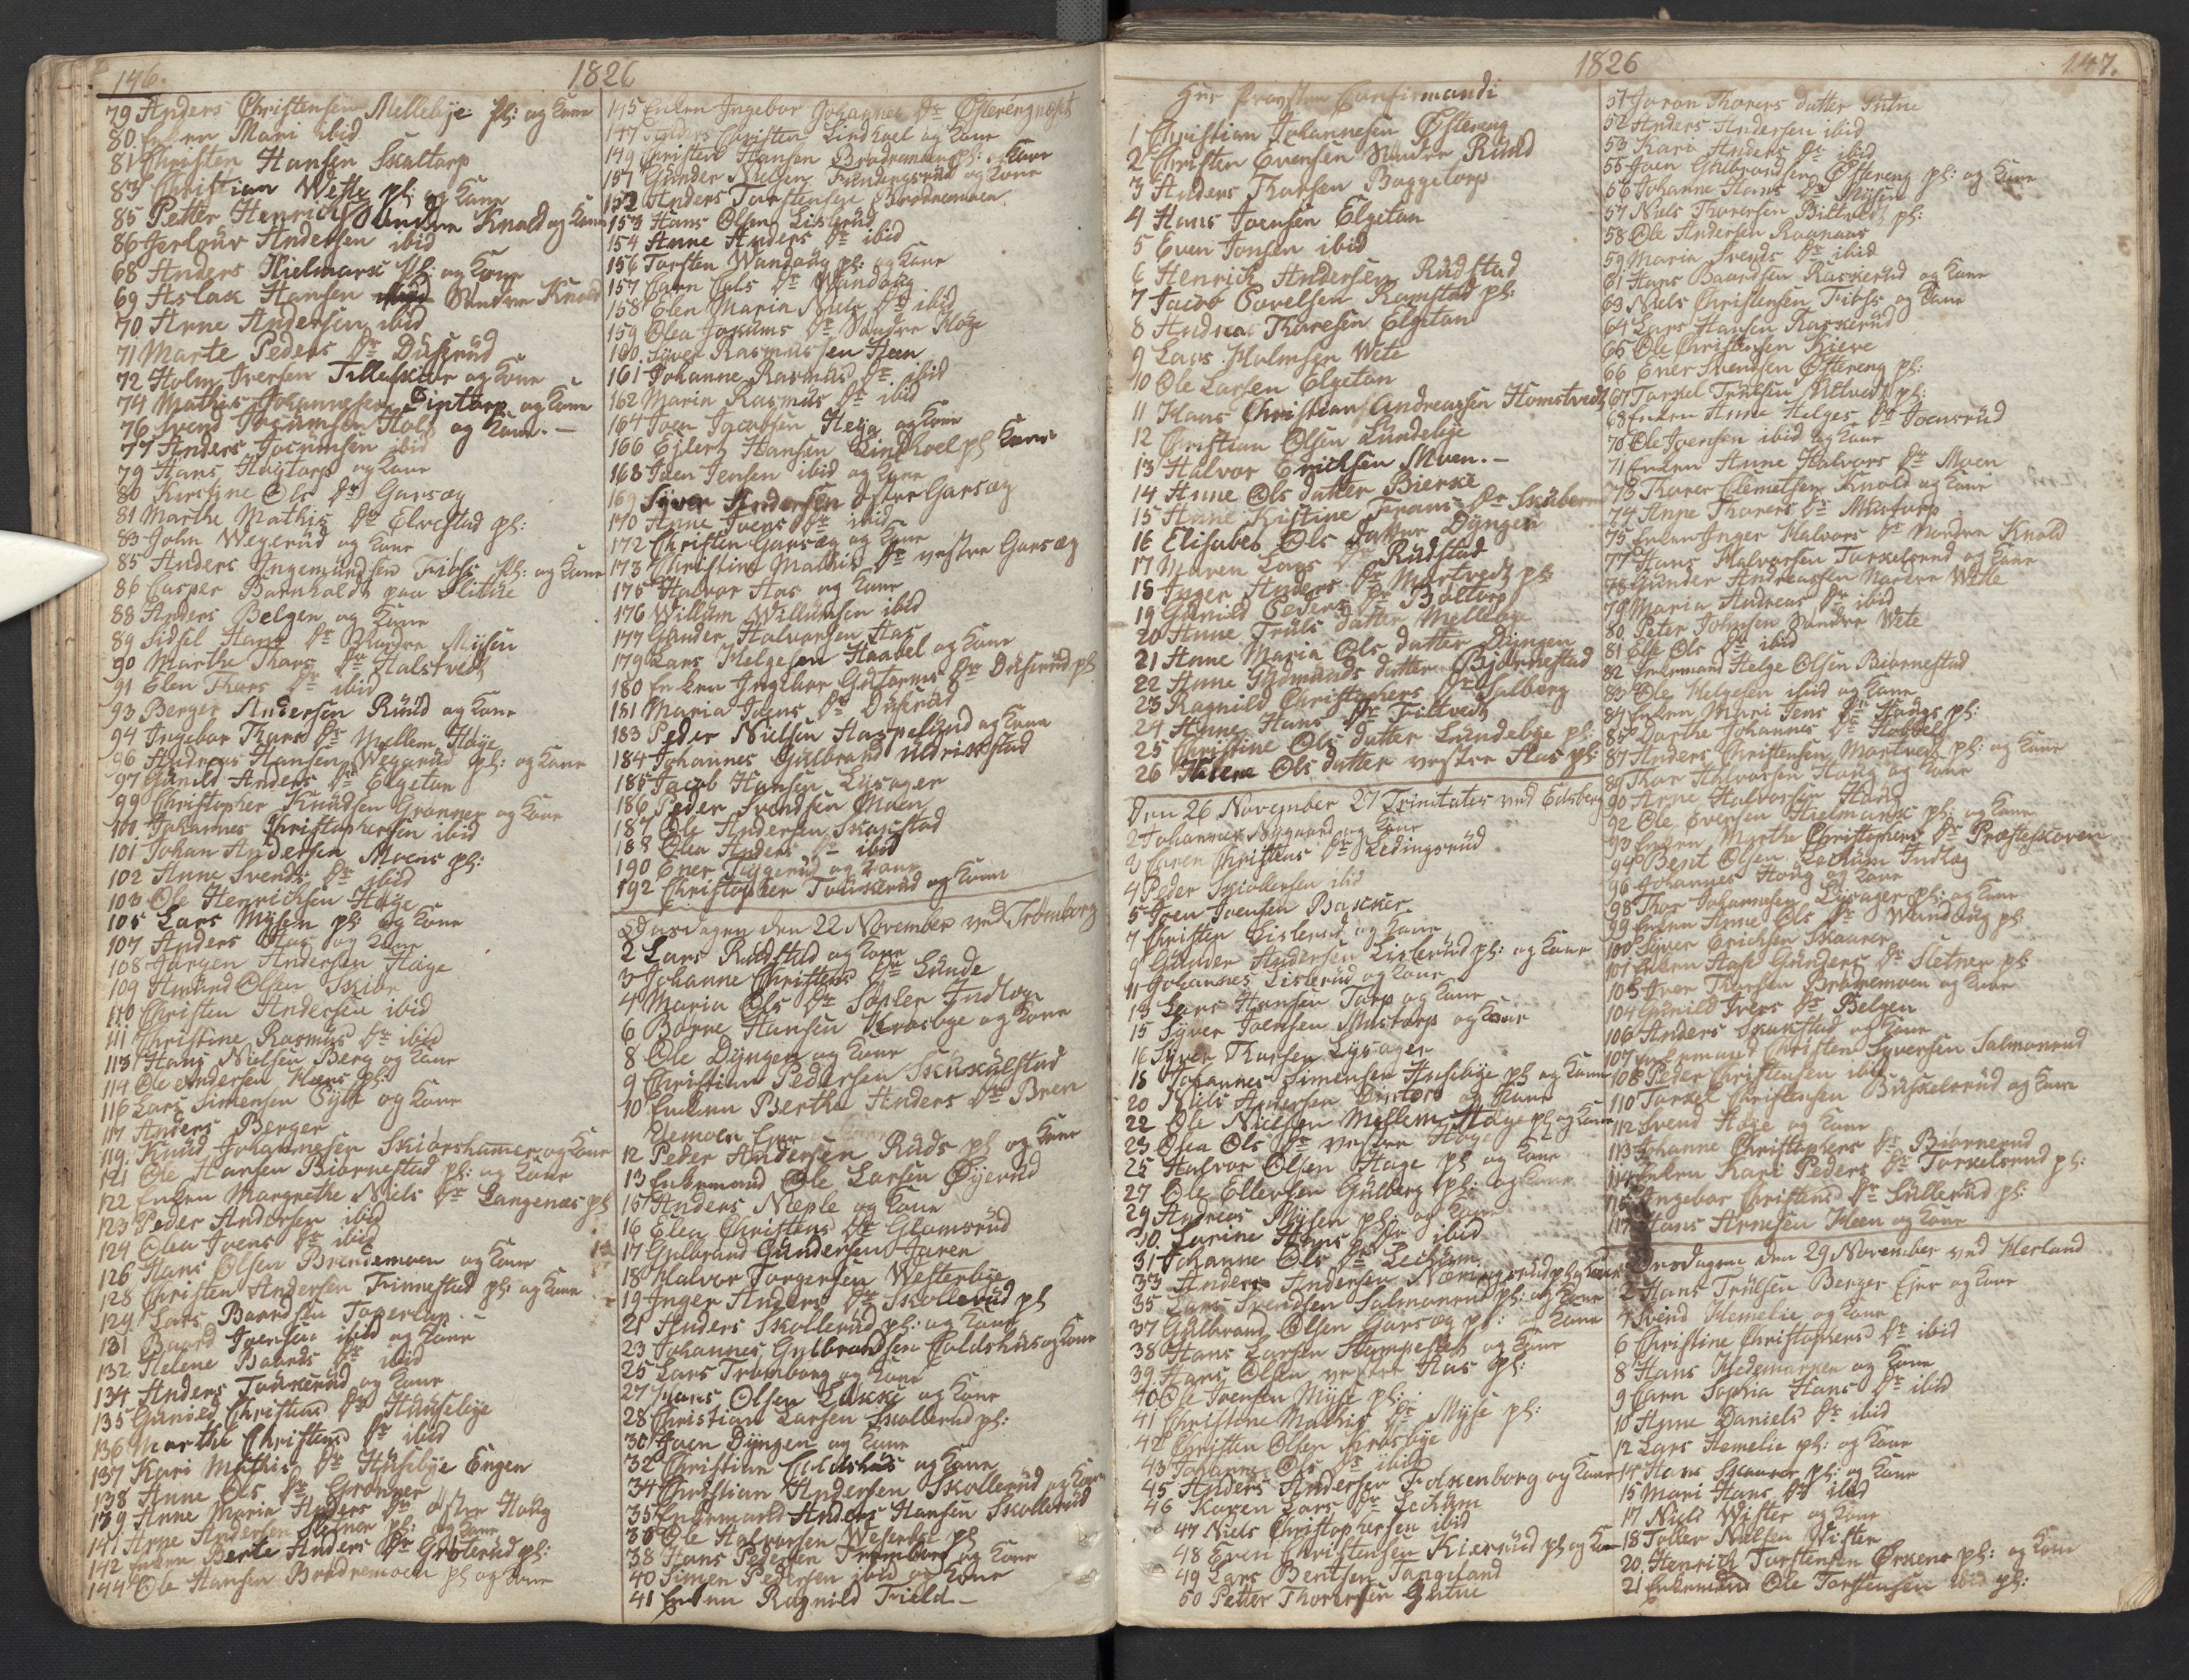 146.
1826
79 Anders Christensen Mellebye pl: og Kone
80. Enken Mari ibid
81 Christen Hansen Skaltorp
83 Christian Wette pl: og Kone
85 Petter Henrich Søndre Knold og Kone
86 Gerlouv Andersen ibid
68 Anders Hielmark Pl: og Kone
69 Aslak Hansen Søndre Knold
70 Anne Andersen ibid
71 Marte Peders Dr Duserud
72 Holm Iversen Tilleskior og Kone
74 Mathis Johannesen Dintorp og Kone
76 Svend Jocumsen Holt og Kone. –
77 Anders Jocumsen ibid
79 Hans Hagtorp og Kone
80 Kirstine Ols Dr Garseg
81 Marthe Mathis Dr Elvestad pl:
83 John Wegerud og Kone
85 Anders Ingemundsen Fibss pl: og Kone
86 Casper Barnholdt paa Slitue
88 Anders Belgen og Kone
89 Sidsel Hans Dr Søndre Mysen
90 Marthe Thors Dr Halstvedt
91 Elen Thors Dr ibid
93 Berger Andersen Ruud og Kone
94 Ingebor Thors Dr Mellem Høye
96 Andreas Hansen Wegerud pl: og Kone
97 Gunild Anders Dr Elgetun
99 Christopher Knudsen Grønner og Kone
100 Johannes Christophersen ibid
101 Johan Andersen Moens pl:
102 Anne Svends Dr ibid
103 Ole Henrichsen Høye
105 Lars Mysen pl: og Kone
107 Anders Aas og Kone
108 Jørgen Andersen Høge
109 Amund Olsen Skiør
110 Christen Andersen ibid
111 Christine Rasmus Dr ibid
113 Hans Nielsen Berg og Kone
114 Ole Andersen Heens pl:
116 Lars Simensen Gylt og Kone
117 Anders Berger
119. Knud Johannesen Skiørshamer og Kone
121 Ole Hansen Biørnestad pl: og Kone
122 Enken Margrethe Niels Dr Langenæs pl
123 Peder Andersen ibid
124 Olea Joens Dr ibid
126 Hans Olsen Brendemoen og Kone
128 Christen Andersen Finnestad pl: og Kone
129. Lars Baardsen Toperup
131 Baard Joensen ibid og Kone
132 Helene Baards Dr ibid
134 Anders Touserud og Kone
135 Gunild Christens Dr Huusebye
136 Marthe Christens Dr ibid
137 Kari Mathis Dr Husebye Engen
138 Anne Ols Dr Grønner
139 Anne Maria Anders Dr østre Houg
141 Arne Andersen Sletner pl: og Kone
142 Enken Berte Anders Dr Groterud pl:
144 Ole Hansen Brødremoen pl og Kone
145 Enken Ingebor Johannes Dr Østerengneset
147 Anders Christen Lindhoel og Kone
149 Christen Hansen Brødremoen pl: og Kone
157 Gunder Nielsen Fundingsrud og Kone
152 Anders Torstensen Brødremoen
153 Hans Olsen Lislerud
154 Anne Anders Dr ibid
156 Torsten Wandoug pl: og Kone
157 Caren Cals Dr Wandoug
158 Elen Maria Niels Dr ibid
159 Olea Jokums Dr Søndre Høge
160. Syver Rasmussen Heen
161 Johanne Rasmus Dr ibid
162 Maria Rasmus Dr ibid
164 Joen Jacobsen Heya og Kone
166 Ejlert Hansen Lindhoel pl Kone
168 Joen Jensen ibid og Kone
169 Syver Andersen østre Garseg
170 Anne Joens Dr ibid
172 Christen Garseg og Kone
173 Christine Mathis Dr vestre Garseg
175 Halvor Aas og Kone
176 Willum Willumsen ibid
177 Gunder Halvorsen Aas
179 Lars Helgesen Haabel og Kone
180 Enken Ingebor Gutorms Dr Duserud pl
181 Maria Joens Dr Duserud
183 Peder Nielsen Haspelund og Kone
184 Johannes Gulbrand Uldrisstad
185 Jacob Hansen Lysager
186 Peder Svendsen Moen
187 Ole Andersen Skakstad
188 Olea Anders Dr ibid
190 Ener Tuggerud og Kone
192 Christopher Touserud og Kone
Onsdagen den 22 November ved Trømborg
2 Lars Rudstad og Kone
3 Johanne Christens Dr Lunde
4 Maria Ols Dr Sopler Indlog
6 Borre Hansen Krosbye og Kone
8 Ole Dyngen og Kone
9 Christian Pedersen Skukulstad
10 Enken Berthe Anders Dr Bren
demoen
12 Peder Andersen Ruds pl og Kone
13 Enkemand Ole Larsen Øyerud
15 Anders Neple og Kone
16 Elea Christens Dr Glomsrud
17 Gulbrand Gundersen Jaren
18 Halvor Torgersen Westerbye
19 Inger Anders Dr Skollerud pl
21 Anders Skollerud pl: og Kone
23 Johannes Gulbrandsen Coldshus og Kone
25 Lars Tromborg og Kone
27 Hans Olsen Løkke og Kone
28 Christian Larsen Skolberud pl:
30 Joen Dyngen og Kone
32 Christian Coldshus og Kone
34 Christian Andersen Skollerud og Kone
35 Enkemand Anders Hansen Skollerud
36 Ole Halvorsen Weserbye pl
38 Hans Pedersen Tromborg og Kone
40 Simen Pedersen ibid og Kone
41 Enken Ragnild Field –
1826
147.
Her Provsten Confirmandi
1 Christian Johannesen Østereng
2 Christen Evensen Søndre Ruud
3 Anders Thorsen Baggetorp
4 Hans Joensen Elgetun
5 Even Jonsen ibid
6 Henrich Andersen Rudstad
7 Jacob Povelsen Ramstad pl:
8 Andreas Thoresen Elgetun
9 Lars Holmsen Wete
10 Ole Larsen Elgetun
11 Hans Christian Andreassen Homstvedt
12 Christian Olsen Lundebye
13 Halvor Erichsen Moen. –
14 Anne Ols datter Bierke
15 Anne Kistine Frans Dr Skuberud
16 Elisabeth Ols datter Dyngen
17 Maren Lars Dr Rudstad
18 Inger Anders Dr Martvedt pl:
19 Gunild Peders Dr Boltorp
20 Anne Truls datter Mellebye
21 Anne Maria Ols datter Dyngen
22 Anne Gudmunds datter Bjørnestad
23 Ragnild Christophers Dr Salberg
24 Anne Hans Dr Filtvedt
25 Christine Ols datter Lundebye pl:
26 Helene Ols datter vestre Aas pl:
Den 26 November 27 Trinitatis ved Edsberg
2 Johannes Nygaard og Kone
3 Karen Christens Dr Ledingsrud
4 Peder Skiollersen ibid
5 Joen Joensen Bakker
7 Christen Lislerud og Kone
9 Gunder Andersen Lislerud pl: og Kone
11 Johannes Lislerud og Kone
13 Lars Hansen Torp og Kone
15 Syver Joensen Mustorp og Kone
16 Syver Thorsen Lysager
18 Johannes Simensen Husebye pl og Kone
20 Niels Andersen Dintorp og Kone
22 Ole Nielsen Mellem Høge pl og Kone
23 Olea Ols Dr vestre Høge
25 Halvor Olsen Høge pl og Kone
27 Ole Ellevsen Gulberg pl: og Kone
29 Andreas Mysen pl: og Kone
30. Karine Hans Dr ibid
31 Johanne Ols Dr Lechum
33 Anders Andersen Nemingsrud pl og Kone
35 Lars Svendsen Salmonrud pl: og Kone
37 Gulbrand Olsen Garseg pl: og Kone
38 Hans Larsen Stampesletten og Kone
39. Hans Olsen vestre Aas pl:
40 Ole Joensen Myse pl:
41 Christine Mathis Dr Myse pl:
42 Christen Olsen Krosbye
43 Johanne Ols Dr ibid
45 Anders Andersen Folkenborg og Kone
46 Karen Lars Dr Lechum
47 Niels Christophersen ibid
48 Even Christensen Kierrud pl og Kone
49 Lars Bentsen Tangeland
50 Petter Thorersen Gutue
51 Joran Thorers datter Gutue
52 Anders Andersen ibid
53 Kari Anders Dr ibid
55 Joen Gulbrandsen Østereng pl: og Kone
56 Johanne Hans Dr Mysen
57 Niels Thorersen Biltvedt pl:
58 Ole Andersen Raanaas
59 Maria Svends Dr ibid
61 Hans Baardsen Raskerud og Kone
63 Niels Christensen Fibss og Kone
64 Lars Hansen Raskerud
65 Ole Christensen Kieve
66 Ener Svendsen Østereng pl:
67 Torkel Trulsen Utvedt pl:
68 Enken Anne Helges Dr Joensrud
70 Ole Joensen ibid og Kone
71 Enken Anne Halvors Dr Moen
73 Thorer Clemetsen Knold og Kone
74 Anne Thorers Dr Mustorp
75 Enken Inger Halvors Dr Nordre Knold
77 Hans Halvorsen Torkelsrud og Kone
78 Gunder Andreassen Nordre Wete
79 Maria Andreas Dr ibid
80 Peter Johnsen Søndre Wete
81 Else Ols Dr ibid
82 Enkemand Helge Olsen Biørnestad
83 Ole Helgesen ibid og Kone
84 Enken Mari Jens Dr Hougs pl:
85 Dorthe Johannes Dr Hobbel
87 Anders Christensen Martvedt pl: og Kone
89 Thor Halvorsen Houg og Kone
90 Arne Halvorsen Houg
92 Ole Evensen Hielmark pl: og Kone
93 Enken Marthe Christophers Dr Præsteskoven
94 Berit Olsen Lechum Indlæg
96 Johannes Houg og Kone
98 Thor Johannesen Lysager pl: og Kone
99 Enken Anne Ols Dr Wandoug pl
100 Syver Erichsen Skourer
101 Enken Aase Gunders Dr Sletner pl
103 Iver Thorsen Brødremoen og Kone
104 Gunild Ivers Dr Belgen
106 Anders Skakstad og Kone
107 Enkemand Christen Syversen Salmonrud
108 Peder Christensen ibid
110 Torkel Christensen Buskelsrud og Kone
112 Svend Høge og Kone
113 Johanne Christophers Dr Biørnerud
114 Enken Kari Peders Dr Torkelsrud pl:
115 Ingebor Christens Dr Sullerud pl:
117 Hans Arnesen Heen og Kone
Onsdagen den 29 November ved Herland
2 Hans Trulsen Berger Ejer og Kone
4 Svend Hemelie og Kone
6 Christine Christophers Dr ibid
8 Hans Hedemarken og Kone
9 Caren Sophia Hans Dr ibid
10 Anne Daniels Dr ibid
12 Lars Hemelie pl: og Kone
14 Hans Skourer pl: og Kone
15 Mari Hans Dr ibid
17 Niels Wister og Kone
18 Toller Nielsen Wister
20. Henrich Torstensen Ørkene pl: og Kone
21 Enkemand Ole Torstensen ibid pl: